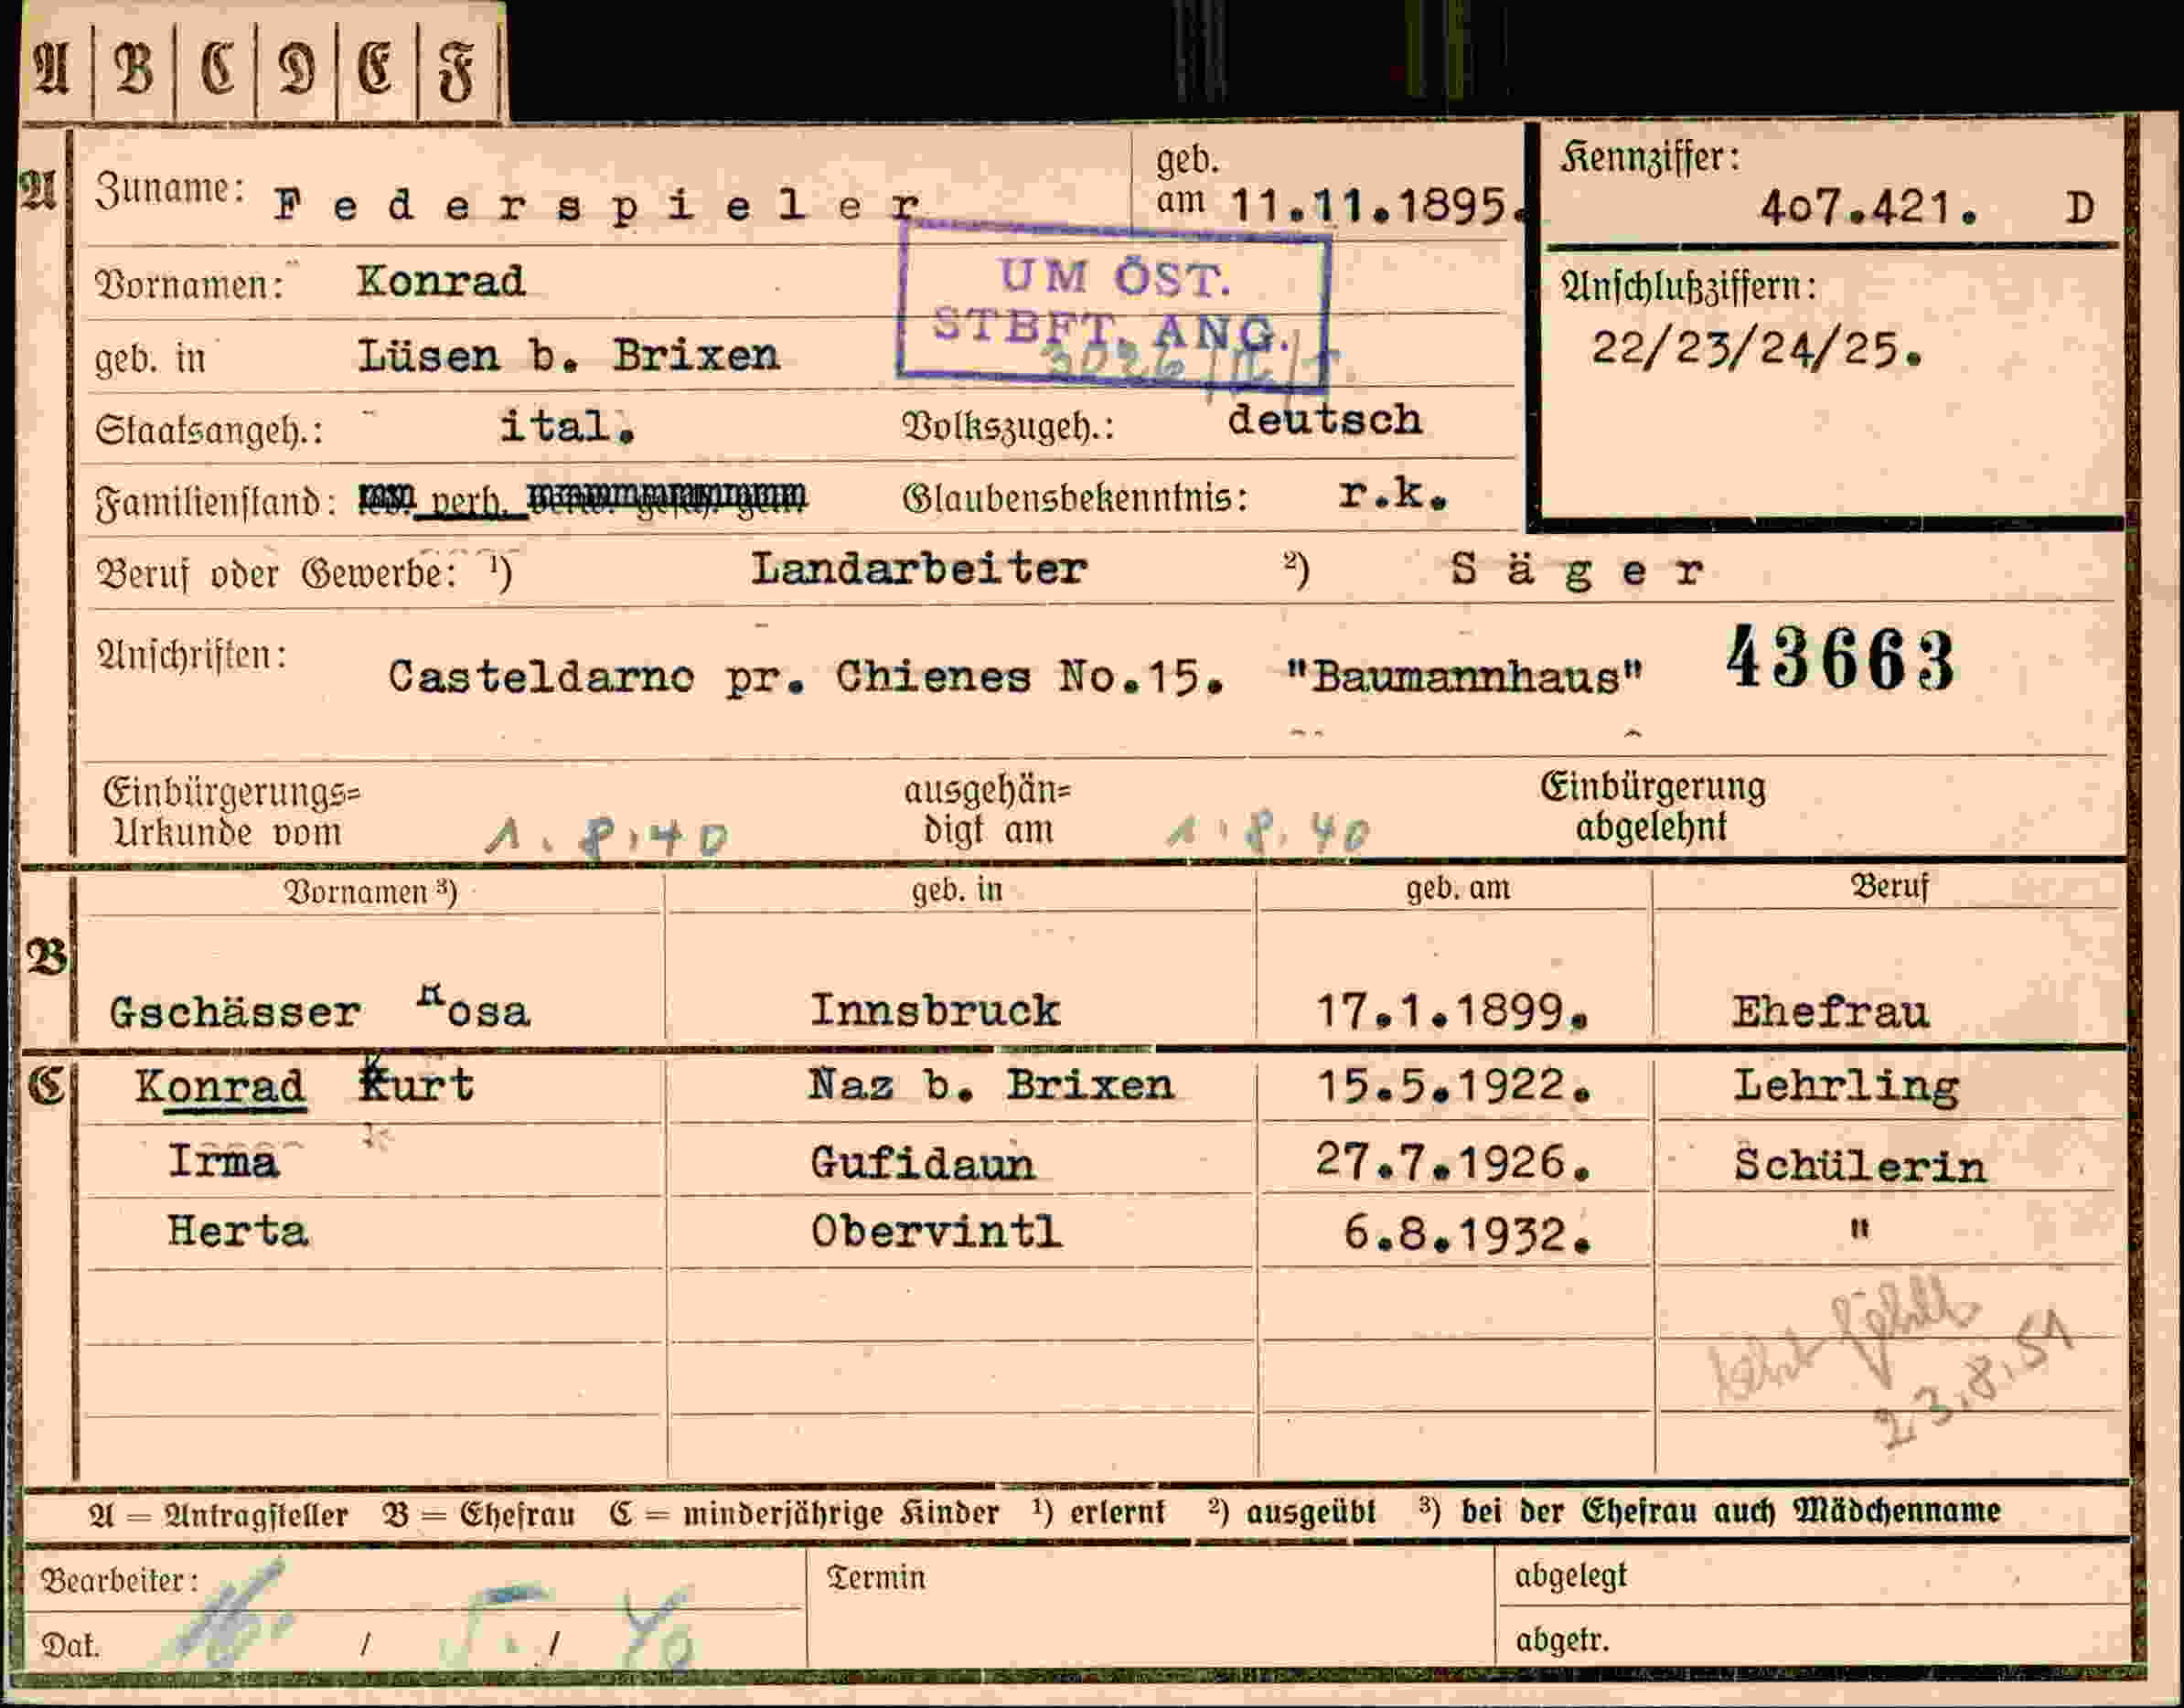 A B C D E F
A Zuname: Federspieler geb. am 11.11.1895. Kennziffer: 407.421. D
Vornamen: Konrad UM ÖST. STBFT. ANG. Anschlußziffern:
geb. in Lüsen b. Brixen 22/23/24/25.
Staatsangeh.: ital. Volkszugeh.: deutsch
Familienstand: verh. Glaubensbekenntnis: r.k.
Beruf oder Gewerbe: ¹) Landarbeiter ²) Säger
Anschriften: Casteldarno pr. Chienes No.15. "Baumannhaus" 43663
Einbürgerungs= Urkunde vom 1.8.40 ausgehän= digt am 1.8.40 Einbürgerung abgelehnt
Vornamen ³) geb. in geb. am Beruf
B Gschässer Rosa Innsbruck 17.1.1899. Ehefrau
C Konrad Kurt Naz b. Brixen 15.5.1922. Lehrling
Irma Gufidaun 27.7.1926. Schülerin
Herta Obervintl 6.8.1932. "
23.8.51
A = Antragsteller B = Ehefrau C = minderjährige Kinder ¹) erlernt ²) ausgeübt ³) bei der Ehefrau auch Mädchenname
Bearbeiter: Termin abgelegt
Dat. 16. / 5. / 40 abgetr.